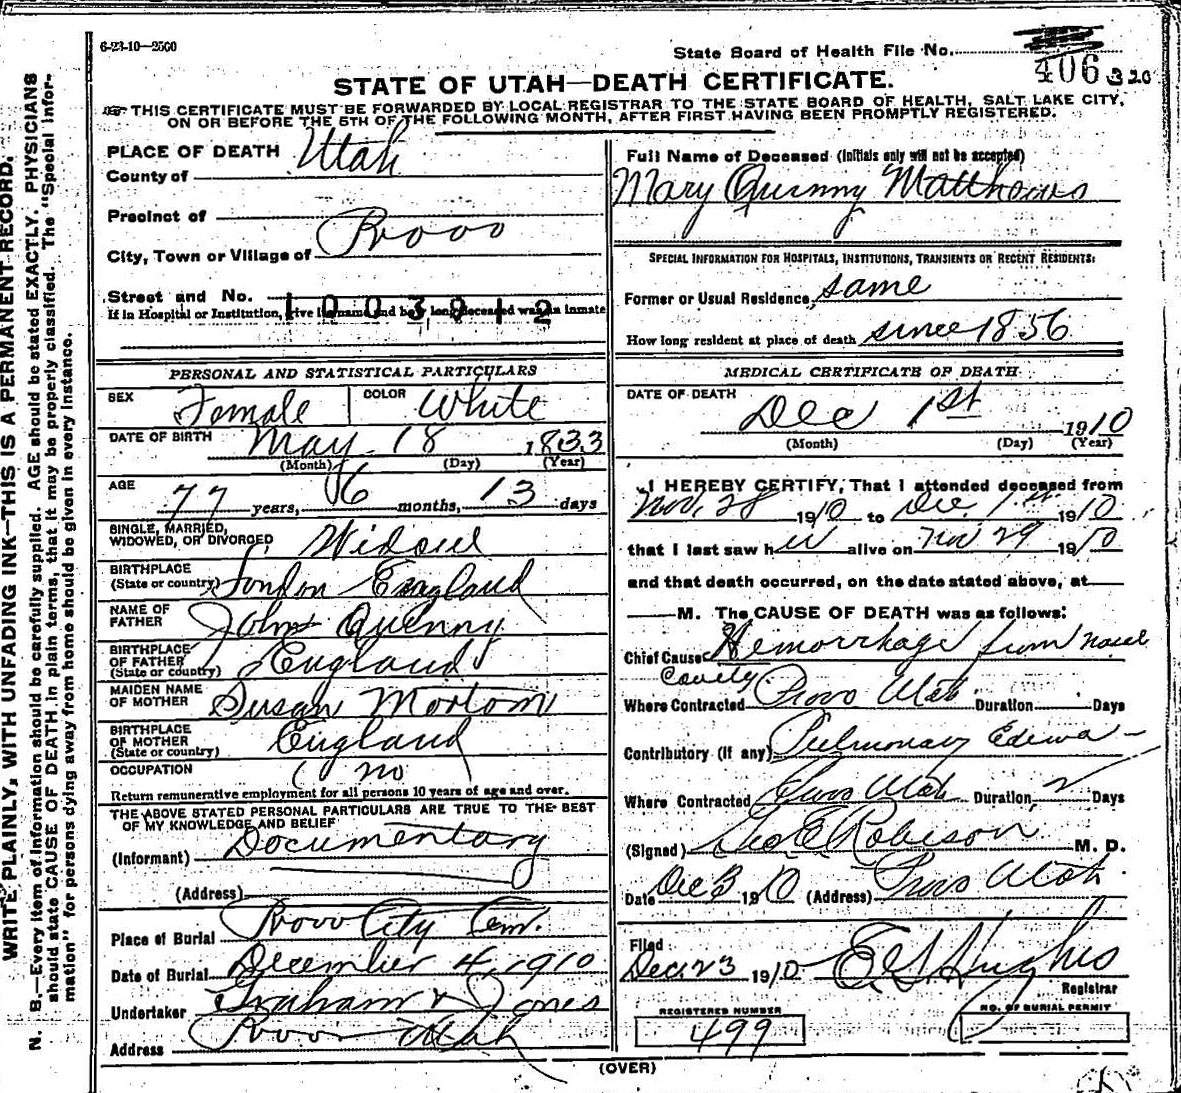 6-23-10—2500
State Board of Health File No.
406 320
STATE OF UTAH—DEATH CERTIFICATE.
THIS CERTIFICATE MUST BE FORWARDED BY LOCAL REGISTRAR TO THE STATE BOARD OF HEALTH, SALT LAKE CITY,
ON OR BEFORE THE 5TH OF THE FOLLOWING MONTH, AFTER FIRST HAVING BEEN PROMPTLY REGISTERED.
WRITE PLAINLY, WITH UNFADING INK—THIS IS A PERMANENT RECORD.
N. B.—Every item of information should be carefully supplied. AGE should be stated EXACTLY. PHYSICIANS
should state CAUSE OF DEATH in plain terms, that it may be properly classified. The "Special Infor-
mation" for persons dying away from home should be given in every instance.
PLACE OF DEATH
County of Utah
Precinct of
City, Town or Village of Provo
Street and No.
1003812
If in Hospital or Institution, give its name and how long deceased was an inmate
PERSONAL AND STATISTICAL PARTICULARS
SEX Female COLOR White
DATE OF BIRTH May 18 1833
(Month) (Day) (Year)
AGE 77 years, 6 months, 13 days
SINGLE, MARRIED,
WIDOWED, OR DIVORCED Widow
BIRTHPLACE
(State or country) London England
NAME OF
FATHER John Quinny
BIRTHPLACE
OF FATHER
(State or country) England
MAIDEN NAME
OF MOTHER Susan Mortom
BIRTHPLACE
OF MOTHER
(State or country) England
OCCUPATION no
Return remunerative employment for all persons 10 years of age and over.
THE ABOVE STATED PERSONAL PARTICULARS ARE TRUE TO THE BEST
OF MY KNOWLEDGE AND BELIEF
(Informant) Documentary
(Address)
Place of Burial Provo City Cem.
Date of Burial December 4, 1910
Undertaker Graham & Jones
Address Provo Utah
Full Name of Deceased (Initials only will not be accepted)
Mary Quinny Matthews
SPECIAL INFORMATION FOR HOSPITALS, INSTITUTIONS, TRANSIENTS OR RECENT RESIDENTS:
Former or Usual Residence, same
How long resident at place of death since 1856
MEDICAL CERTIFICATE OF DEATH
DATE OF DEATH Dec 1st 1910
(Month) (Day) (Year)
I HEREBY CERTIFY, That I attended deceased from
Nov. 28 1910 to Dec. 1st 1910
that I last saw her alive on Nov 29 1910
and that death occurred, on the date stated above, at
M. The CAUSE OF DEATH was as follows:
Chief Cause Hemorrhage from nasal
cavity
Where Contracted Provo Utah Duration Days
Contributory (if any) Pulmonary Edema
Where Contracted Provo Utah Duration 2 Days
(Signed) Geo E Robison M. D.
Date Dec 3 1910 (Address) Provo Utah
Filed
Dec. 23 1910 E. S. Hughes
Registrar
REGISTERED NUMBER
499
NO. OF BURIAL PERMIT
(OVER)